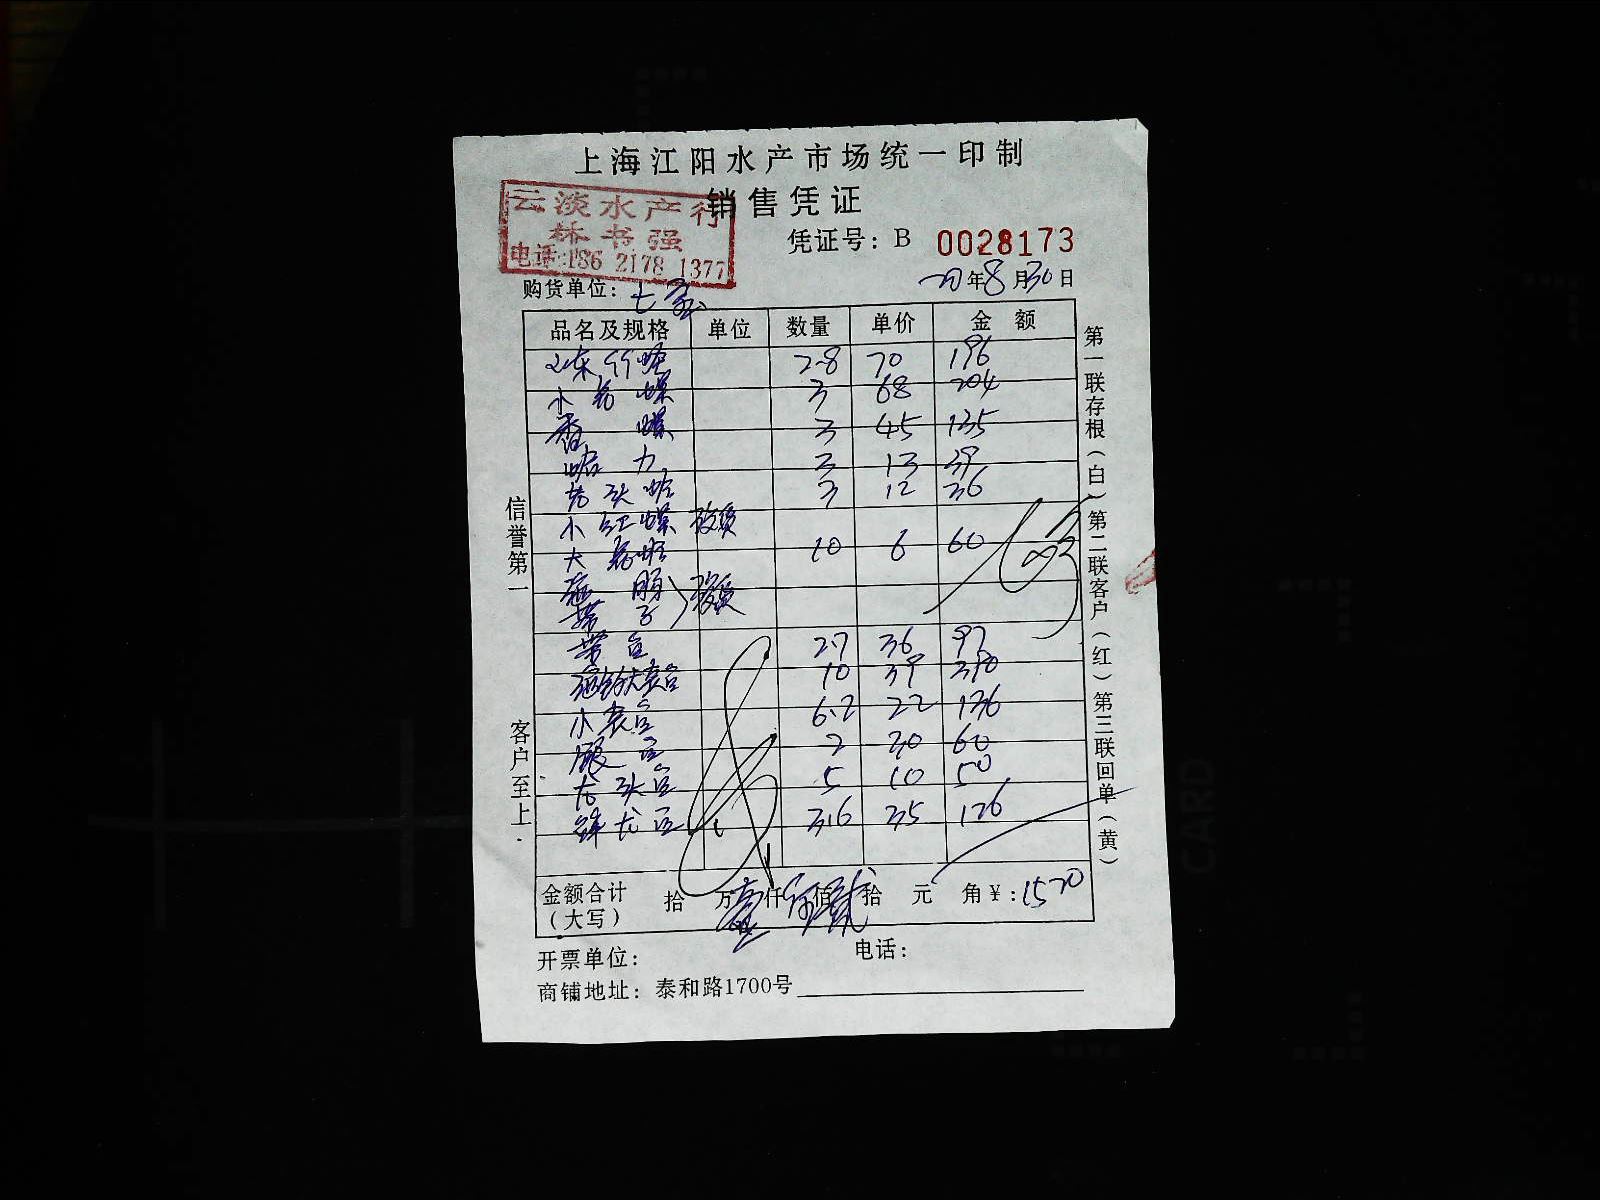 上海江阳水产市场统一印制
销售凭证
云淡水产行
林书强
电话:186 2178 1377
凭证号: B 0028173
20年8月30日
购货单位: 七
品名及规格 单位 数量 单价 金额
山东竹蛏 2.8 70 196
小 螺 3 68 204
香螺 3 45 135
蛤 3 13 39
3 12 36
小红螺
大 10 6 60
带子
带鱼 2.7 36 97
10 39 390
小黄鱼 6.2 22 136
2 30 60
龙头鱼 5 10 50
龙鱼 3.6 35 126
金额合计
(大写) 拾 万 壹 仟 伍 佰 贰 拾 元 角 ¥:1520
开票单位: 电话:
商铺地址: 泰和路1700号
信誉第一
客户至上.
第一联存根(白)第二联客户(红)第三联回单(黄)
CARD